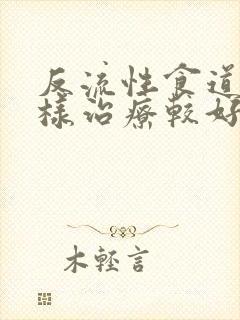 反流性食道
樣治療較好
木輕言